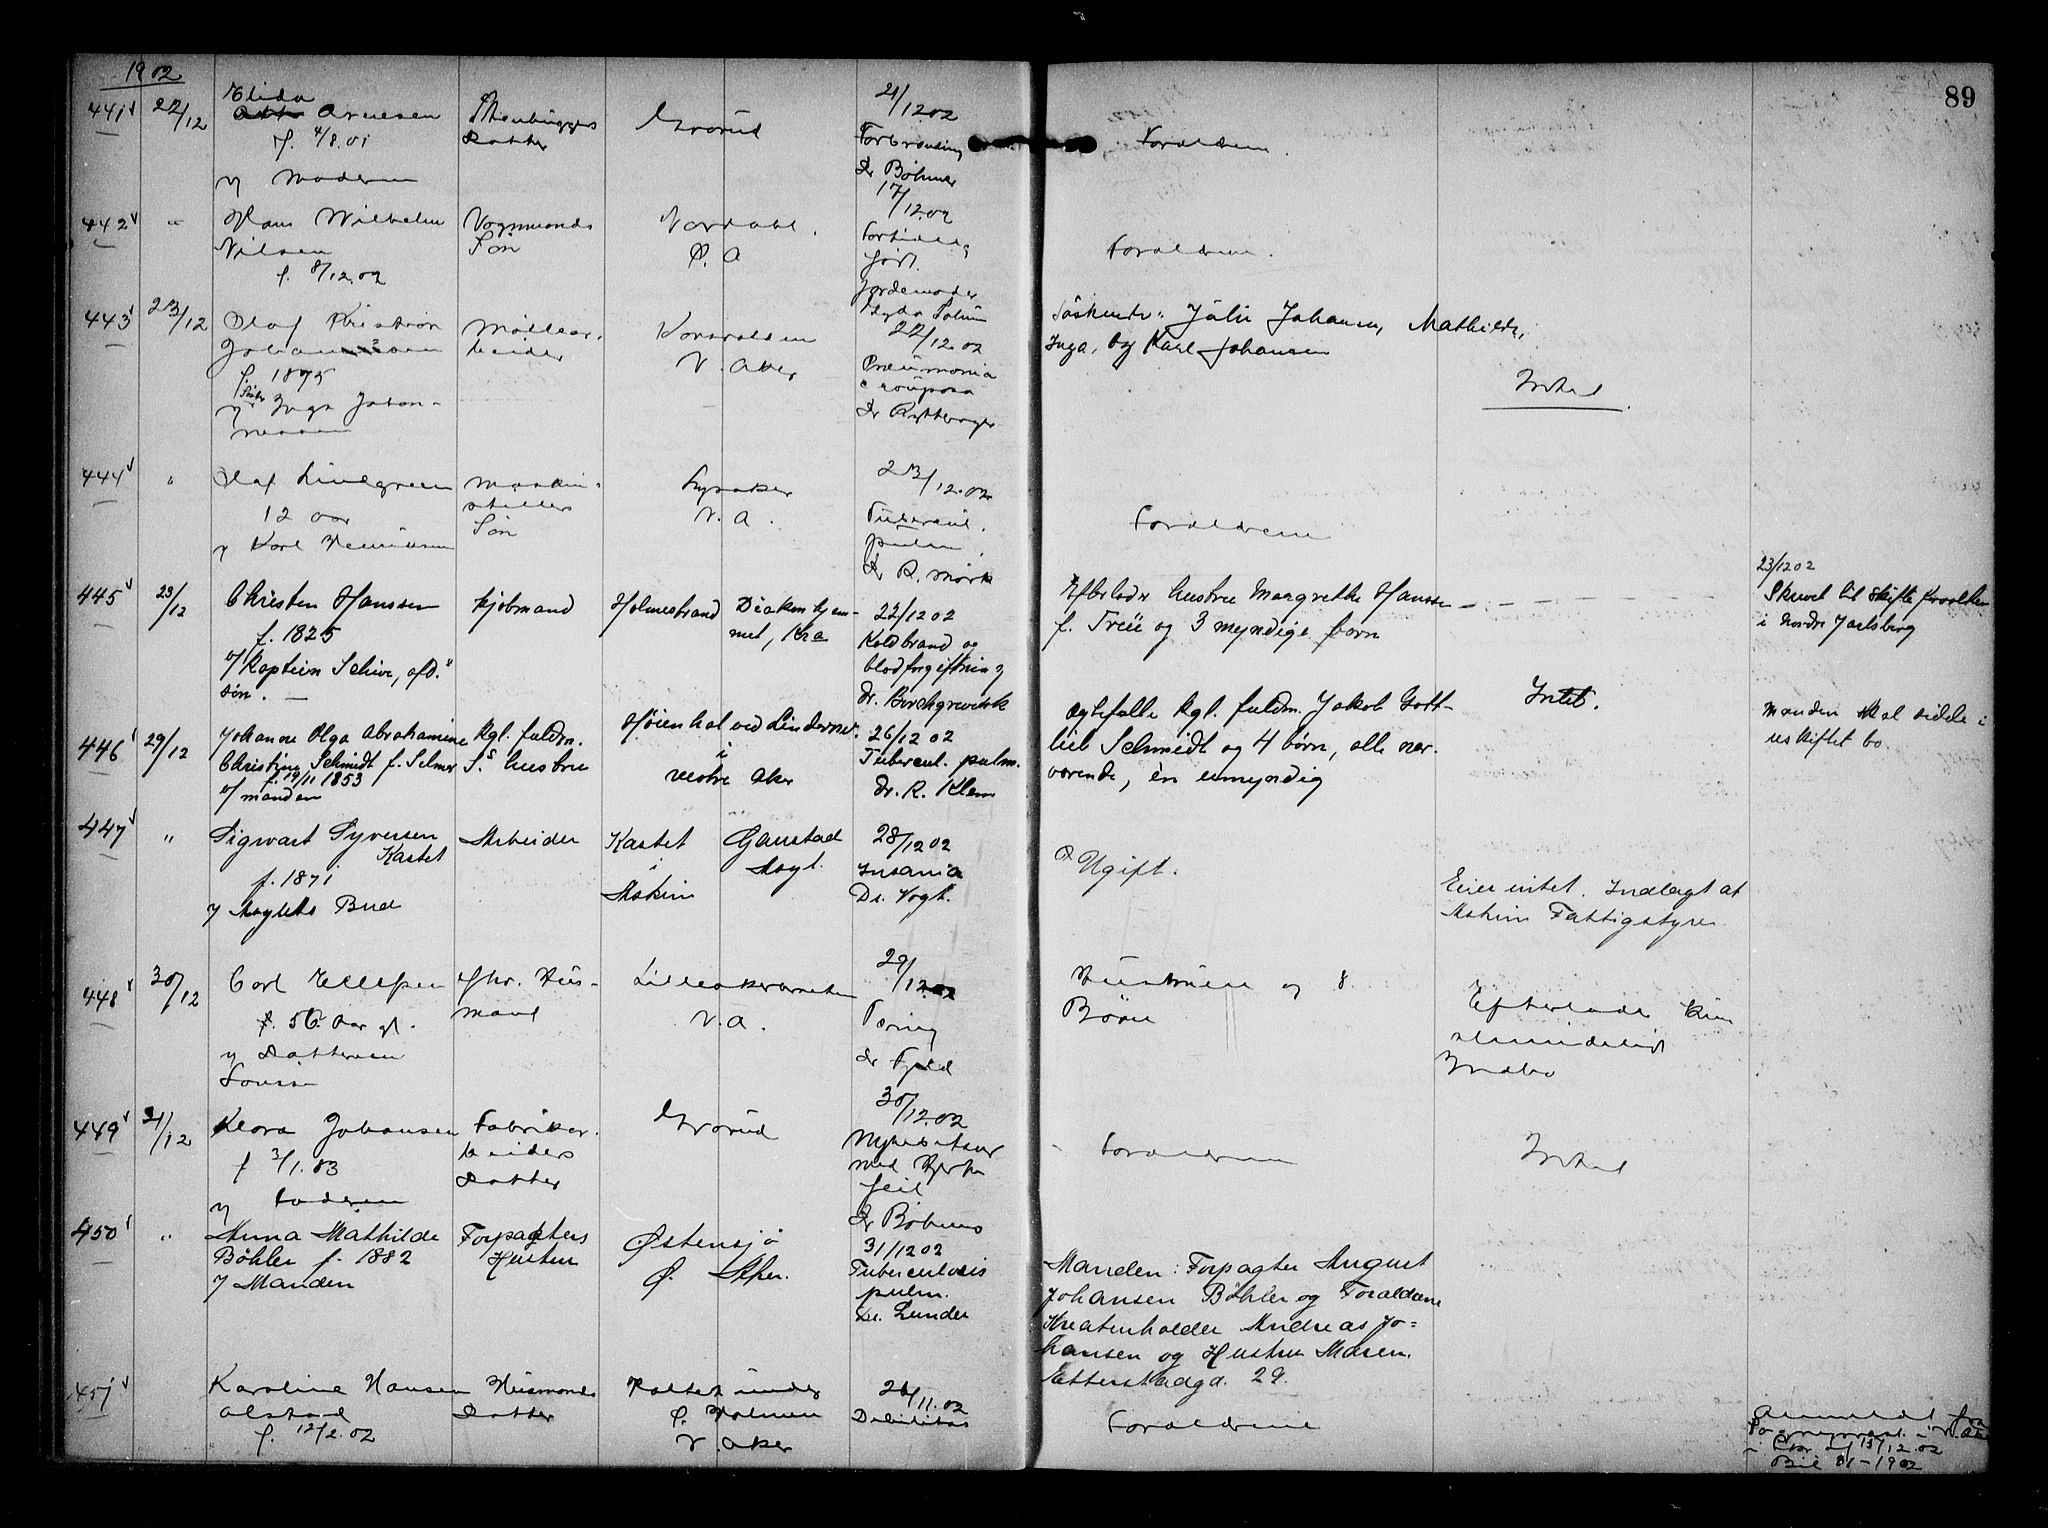 1902
89
441 22/12
Elida
Arnesen
f. 4/8.01
v/ Moderen
Stenhuggers
Datter
Grorud
21/12.02
Forbrænding
Dr Bøhmer
Forældrene.
442 "
Hans Wilhelm
Nilsen
f. 8/12.02
Vognmands
Søn
Nordahl.
Ø. A
17/12.02
Fortidlig
født.
Jordemoder
Forældrene.
443 23/12
Olaf Kristian
Johannessen
f. 1875
Søster
v/ Inga Johan-
nessen
Møllear-
beider
V. Aker
22/12.02
Pneumonia
crouposa
Søskende: Julie Johansen, Mathilde,
Inga, og Karl Johansen
Intet.
444 "
Olaf Lindgreen
12 aar
v/ Karl Henriksen
Maskin-
stillers
Søn
Lysaker
V. A.
23/12.02
Tubercul.
pulm.
Dr R. Mørk
Forældrene
445 23/12
Christen Hanssen
f. 1825
v/ Kaptein Schive, afd.s
søn.
Kjøbmand
Holmestrand
Diakonhjem-
met, Kra
22/12 02
Koldbrand og
blodforgiftning
dr. Borchgrevink
Efterlader hustru Margrethe Hanssen
f. Treu og 3 myndige børn
23/12 02
Skrevet til Skifteforvalteren
i Nordre Jarlsberg
446 29/12
Johanne Olga Abrahamine
Christine Schmidt f. Selmer
f. 19/11 1853
v/ manden
Kgl. fuldm.
S.s hustru
Høienhal ved Lindernv.
i
vestre Aker
26/12 02
Tubercul. pulm.
dr. R. Klem
Ægtefælle Kgl. fuldm. Jakob Gott-
lieb Schmidt og 4 børn, alle nær-
værende, èn umyndig
Intet.
Manden skal sidde i
uskiftet bo.
447 "
Sigwart Syversen
Kastet
f. 1871
v/ Asylets Bud
Arbeider
Kastet
i
Askim
Gaustad
Asyl.
28/12 02
Insania
Dr. Vogt.
Ugift.
Eier intet. Indlagt af
Askim Fattigstyre
448 30/12
Carl Ellefsen
56 Aar gl.
v/ Datteren
Lovise
fhv. Hus-
mand
V. A.
29/12.02
Tæring
Dr Fjeld
Hustruen og 8
Børn
Efterlader kun
almindeligt
Indbo
449 31/12
Klara Johansen
f 3/1.83
v/ Faderen
Fabrikar-
beiders
Datter
Grorud
30/12.02
Nyrebetæn
med Hjerte
feil
Dr Bøhmer
Forældrene
Intet
450 "
Anna Mathilde
Bøhler f. 1882
v/ Manden
Forpagters
Hustru
Østensjø
Ø. Aker.
31/12 02
Tuberculosis
pulm.
Dr. Lunde
Manden: Forpagter August
Johansen Bøhler og Forældrene
Kreaturholder Andreas Jo-
hansen og Hustru Maren.
Etterstadgd. 29.
451
Karoline Hansen
Alstad
f. 12/2.02
Husmands
Datter
Holtet under
Ø. Holmen
V. Aker
26/11.02
Debilitas
Forældrene
Anmeldt fra
Sogneprest i V. Aker
i Skr af 13/12.02
Bil 81-1902